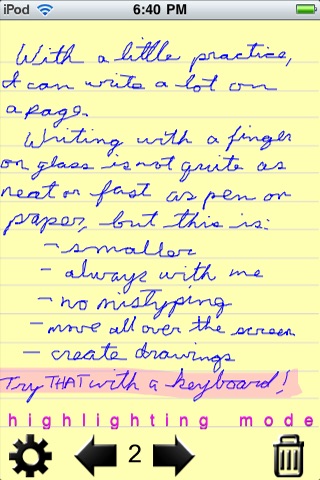 iPod 6:40 PM
With a little practice,
I can write a lot on
a page.
Writing with a finger
on glass is not quite as
neat or fast as pen on
paper, but this is:
- smaller
- always with me
- no mistyping
- move all over the screen
- create drawings
Try THAT with a keyboard!
highlighting mode
2